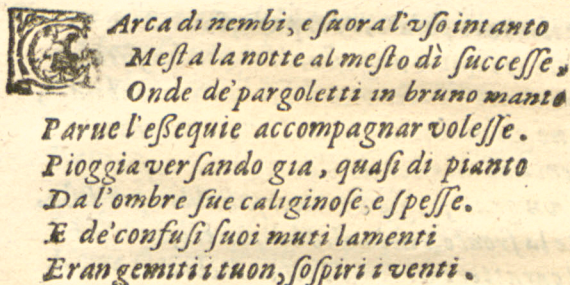 CArca di nembi, e fuora l'vſo intanto
Meſta la notte al meſto dì ſucceſſe,
Onde de' pargoletti in bruno manto
Parue l'eßequie accompagnar voleſſe.
Pioggia verſando gia, quaſi di pianto
Da l'ombre ſue caliginoſe, e ſpeſſe.
E de' confuſi ſuoi muti lamenti
Eran gemiti i tuon, ſoſpiri i venti.